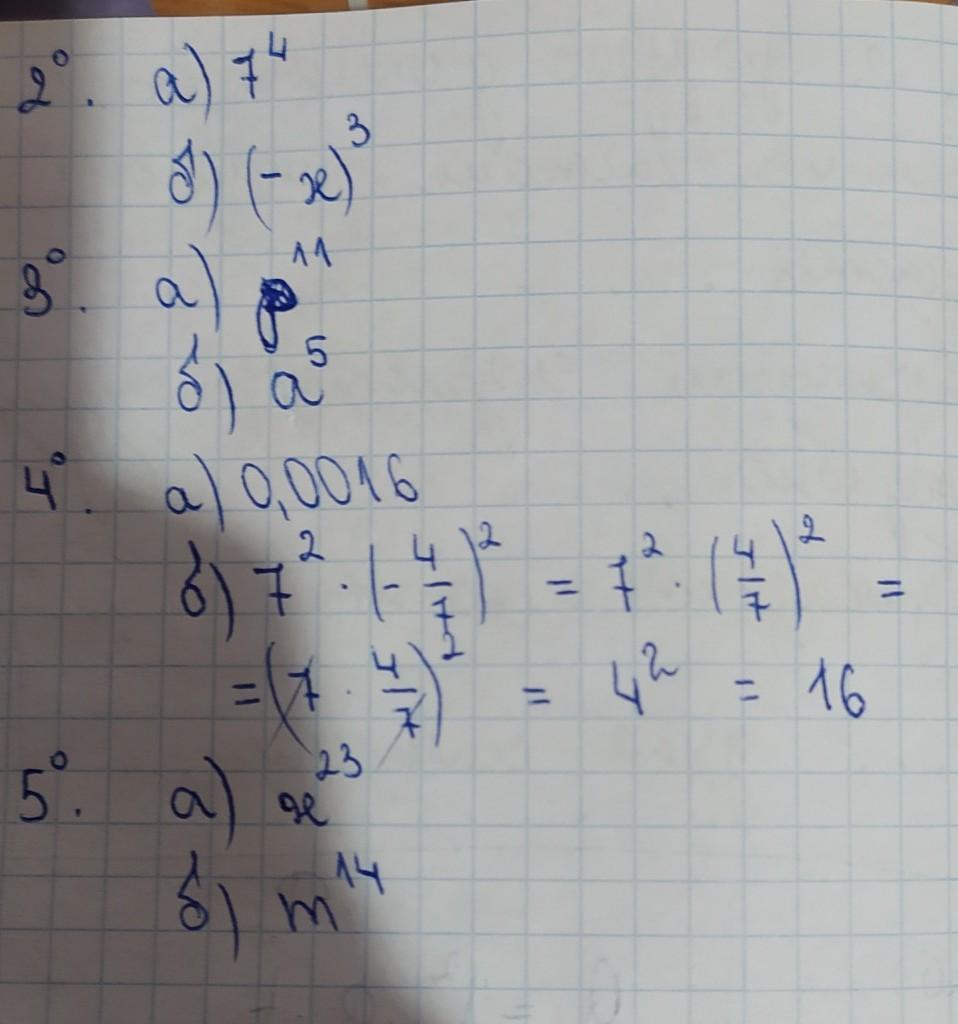 2°. а) 7⁴
б) (-x)³
3°. а) p¹¹
б) a⁵
4°. а) 0,0016
б) 7² · (-4/7)² = 7² · (4/7)² =
= (7 · 4/7)² = 4² = 16
5°. а) x²³
б) m¹⁴